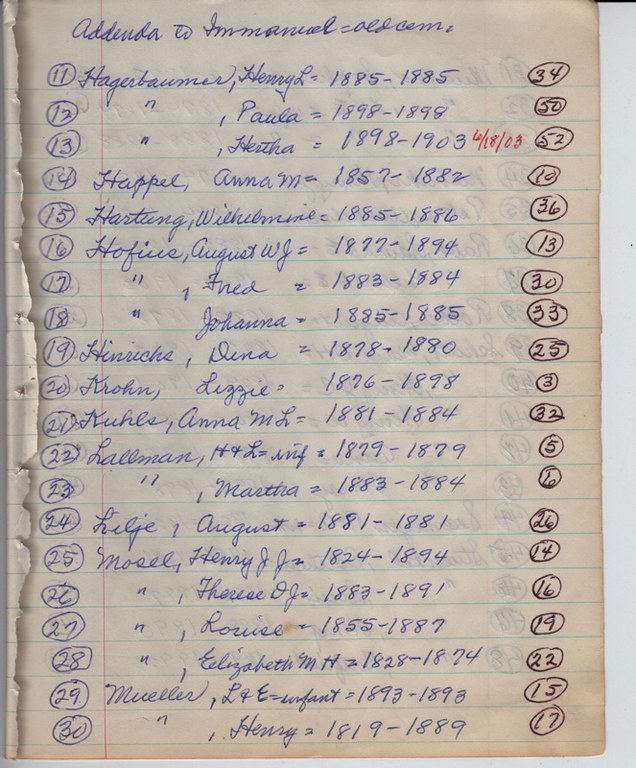 Addenda to Immanuel = old cem.
11 Hagerbaumer, Henry L = 1885-1885 34
12 " , Paula = 1898-1898 50
13 " , Hertha = 1898-1903 6/18/03 52
14 Happel, Anna M = 1857-1882 10
15 Hartung, Wilhelmine = 1885-1886 36
16 Hofius, August W J = 1877-1894 13
17 " , Fred = 1883-1884 30
18 " Johanna = 1885-1885 33
19 Hinrichs, Dina = 1878-1880 25
20 Krohn, Lizzie = 1876-1898 3
21 Kuhls, Anna M L = 1881-1884 32
22 Lallman, H & L = inf = 1879-1879 5
23 " , Martha = 1883-1884 6
24 Lilje, August = 1881-1881 26
25 Mosel, Henry J J = 1824-1894 14
26 " , Therese D J = 1883-1891 16
27 " , Louise = 1855-1887 19
28 " , Elizabeth M H = 1828-1874 22
29 Mueller, L & E = infant = 1893-1893 15
30 " , Henry = 1819-1889 17